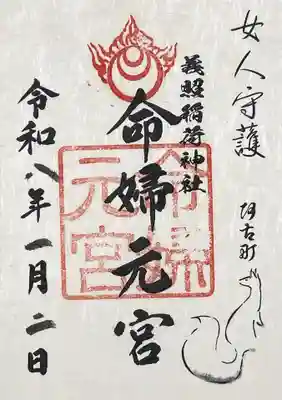 女人守護
阿古町
義照稲荷神社
命婦元宮
命婦
元宮
令和八年一月二日